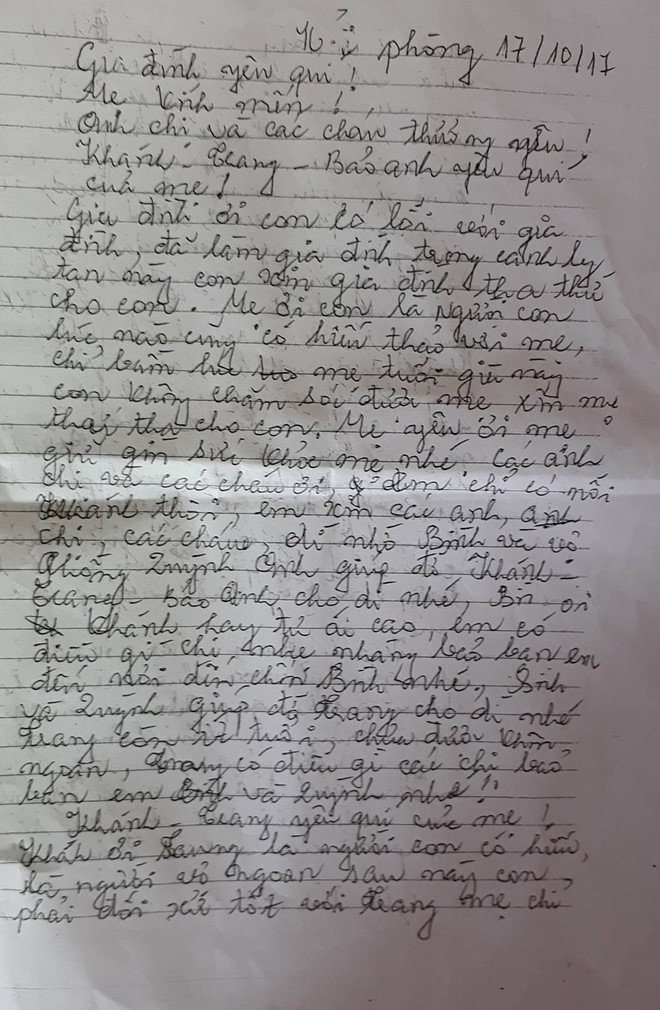 Hải phòng 17/10/17
Gia đình yêu quí!
Mẹ kính mến!
Anh chị và các cháu thương yêu!
Khánh - Trang - Bảo anh yêu quí
của mẹ!
Gia đình ơi con có lỗi với gia
đình, đã làm gia đình trong cảnh ly
tan này con xin gia đình tha thứ
cho con. Mẹ ơi con là người con
lúc nào cũng có hiếu thảo với mẹ,
chỉ mẹ tuổi già này
con không chăm sóc được mẹ xin mẹ
tha cho con. Mẹ yêu ơi mẹ
giữ gìn sức khỏe mẹ nhé. Các anh
chị và các cháu ơi, dì chỉ có nỗi
thôi, em xin các anh, anh
chị, các cháu, dì nhờ Bình và vợ
chồng Quỳnh Anh giúp đỡ Khánh -
Trang - Bảo Anh cho dì nhé, ơi
Khánh hay tự ái cao, em có
điều gì chị nhẹ nhàng bảo ban em
đến nơi đến chốn Bình nhé, Bình
và Quỳnh giúp đỡ Trang cho dì nhé
Trang còn ít tuổi, chưa được khôn
ngoan, Trang có điều gì các chị bảo
ban em Bình và Quỳnh nhé!
Khánh - Trang yêu quí của mẹ!
Khánh ơi Trang là người con có hiếu,
là người vợ ngoan sau này con
phải đối xử tốt với Trang mẹ chỉ